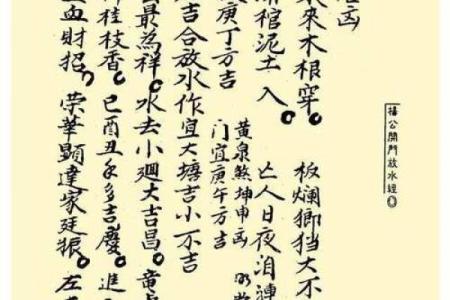 楊公開門放水經
凶
來木根穿。板爛卿挡大不
棺泥土入。亡人日夜泪漣
黃泉煞坤申凶
庚丁方吉 門宜庚午方吉
吉合放水作宜大塘吉小不吉
最為祥。水去小迴大吉昌。童
桂枝香。巳酉丑年多吉慶。進
血財招。榮華顯達家廷振。左